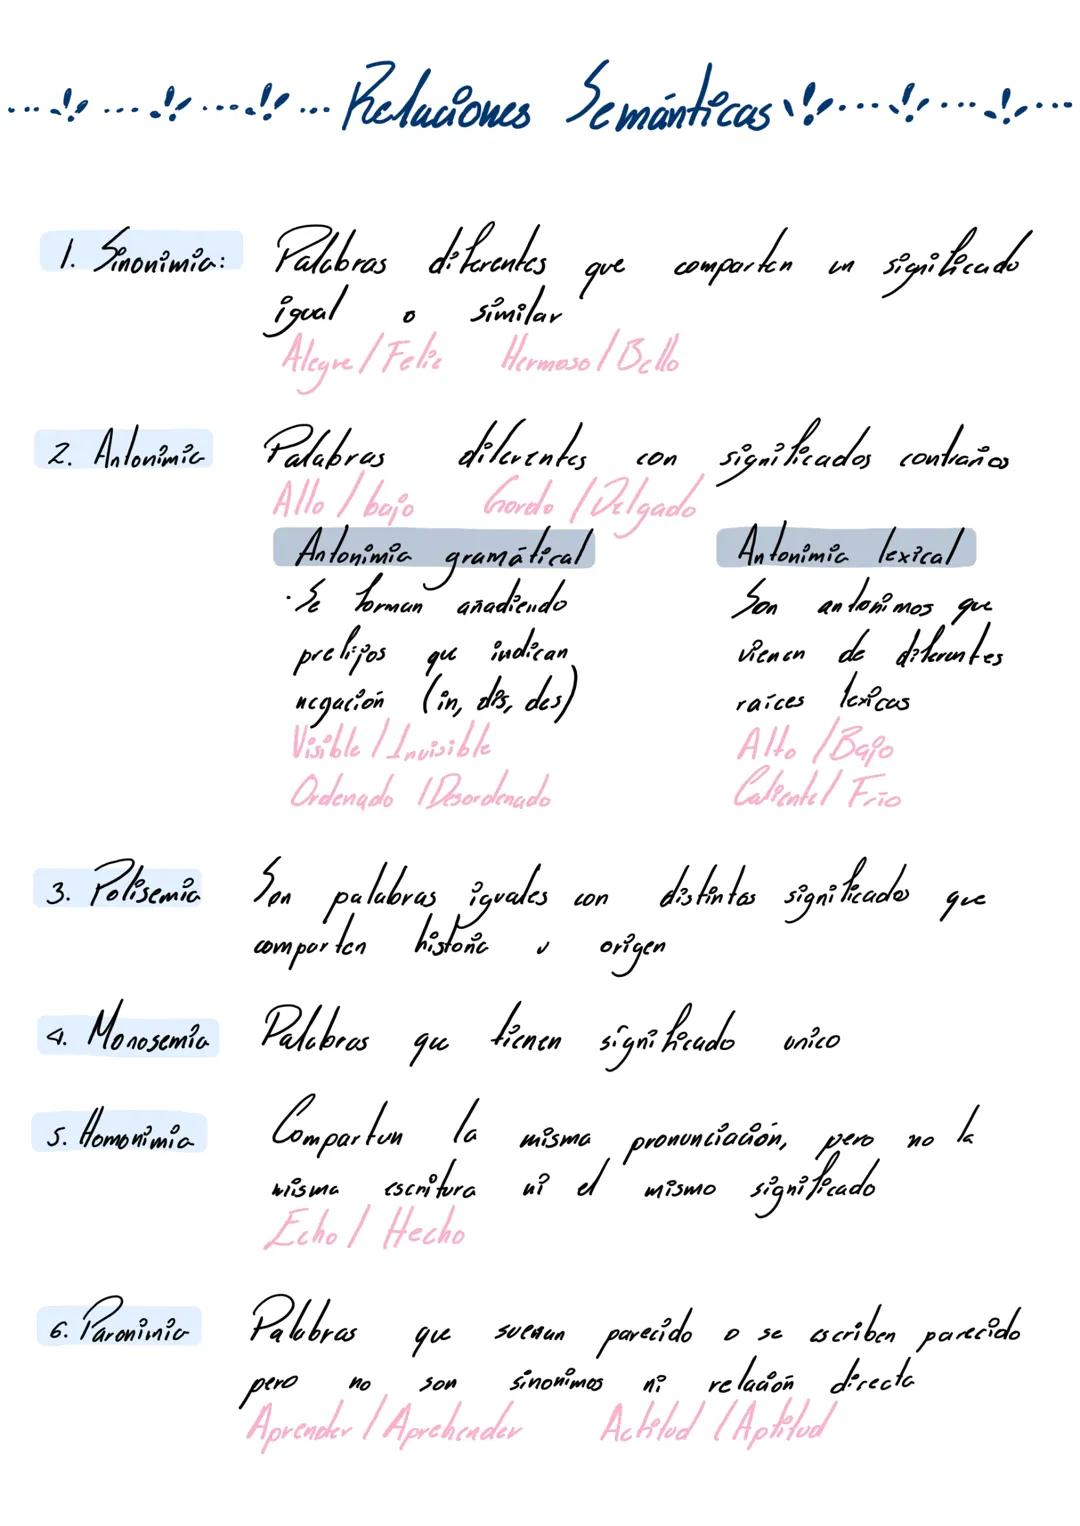 Relaciones Semánticas
1. Sinonimia: Palabras diferentes que comparten un significado
igual o similar
Alegre / Feliz Hermoso / Bello
2. Antonimia Palabras diferentes con significados contrarios
Alto / bajo Gordo / Delgado
Antonimia gramátical
· Se forman añadiendo
prefijos que indican
negación (in, dis, des)
Visible / Invisible
Ordenado / Desordenado
Antonimia lexical
Son antonimos que
vienen de diferentes
raíces lexicas
Alto / Bajo
Caliente / Frío
3. Polisemia Son palabras iguales con distintos significados que
comparten historia y origen
4. Monosemia Palabras que tienen significado unico
5. Homonimia Comparten la misma pronunciación, pero no la
misma escritura ni el mismo significado
Echo / Hecho
6. Paronimia Palabras que suenan parecido o se escriben parecido
pero no son sinonimos ni relación directa
Aprender / Aprehender Actitud / Aptitud